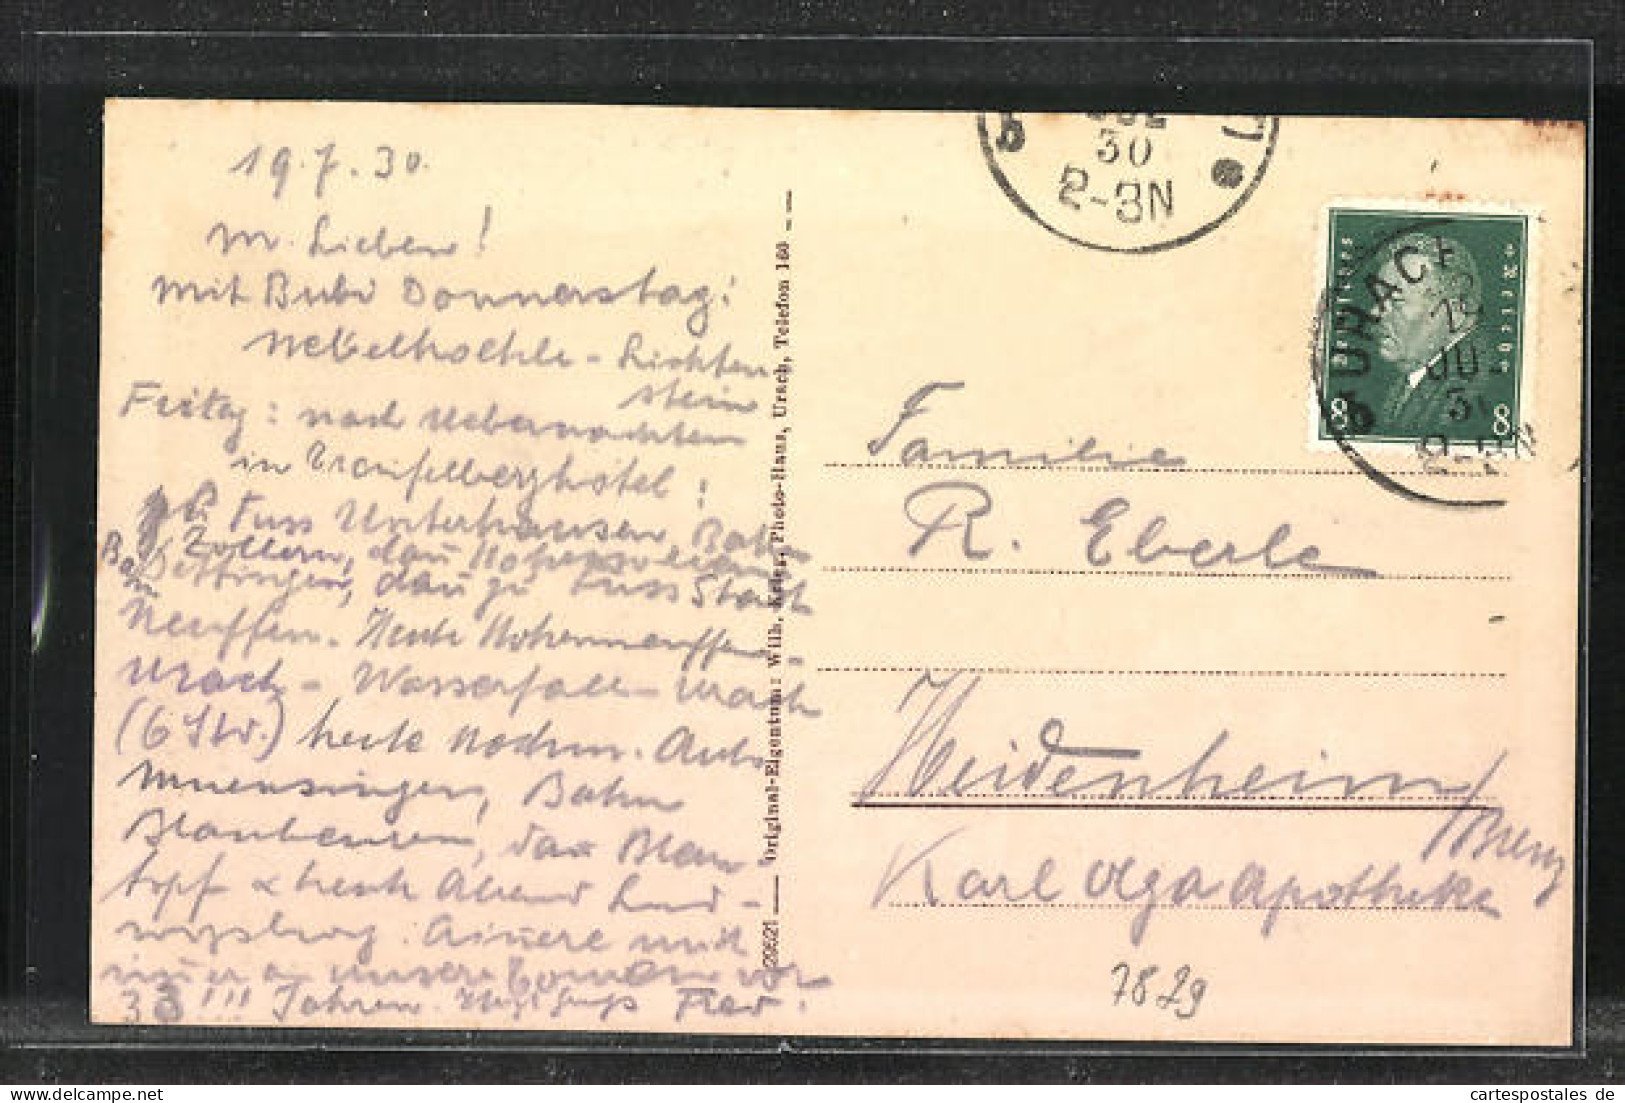 19.7.30.
M. Lieben!
Mit Bubi Donnerstag:
Nebelhoehle - Lichten
stein
Freitag: nach Uebernachten
in Traifelberghotel:
zu Fuss Unterhausen, Bahn
Zollern, dan Hohenzollern
Bahn Dettingen, dan zu Fuss Stadt
Neuffen. Heute Hohenneuffen -
Urach - Wasserfall - Urach
(6 Std.) heute Nachm. Auto
Muensingen, Bahn
Blaubeuren, dan Blau
topf & heute Abend Lud-
wigsburg. Erinnere mich
immer an unsere Touren vor
33!!! Jahren. Hzl Gruss Fred.
29521 Original-Eigentum: Wilh. Kelle, Photo-Haus, Urach, Telefon 160
JUL
30
2-3N
URACH
19
JUL
30
2-3N
Deutsches Reich
8 8
Familie
R. Eberle
Heidenheim/Brenz
Karl Olga Apotheke
7829
cartespostales de